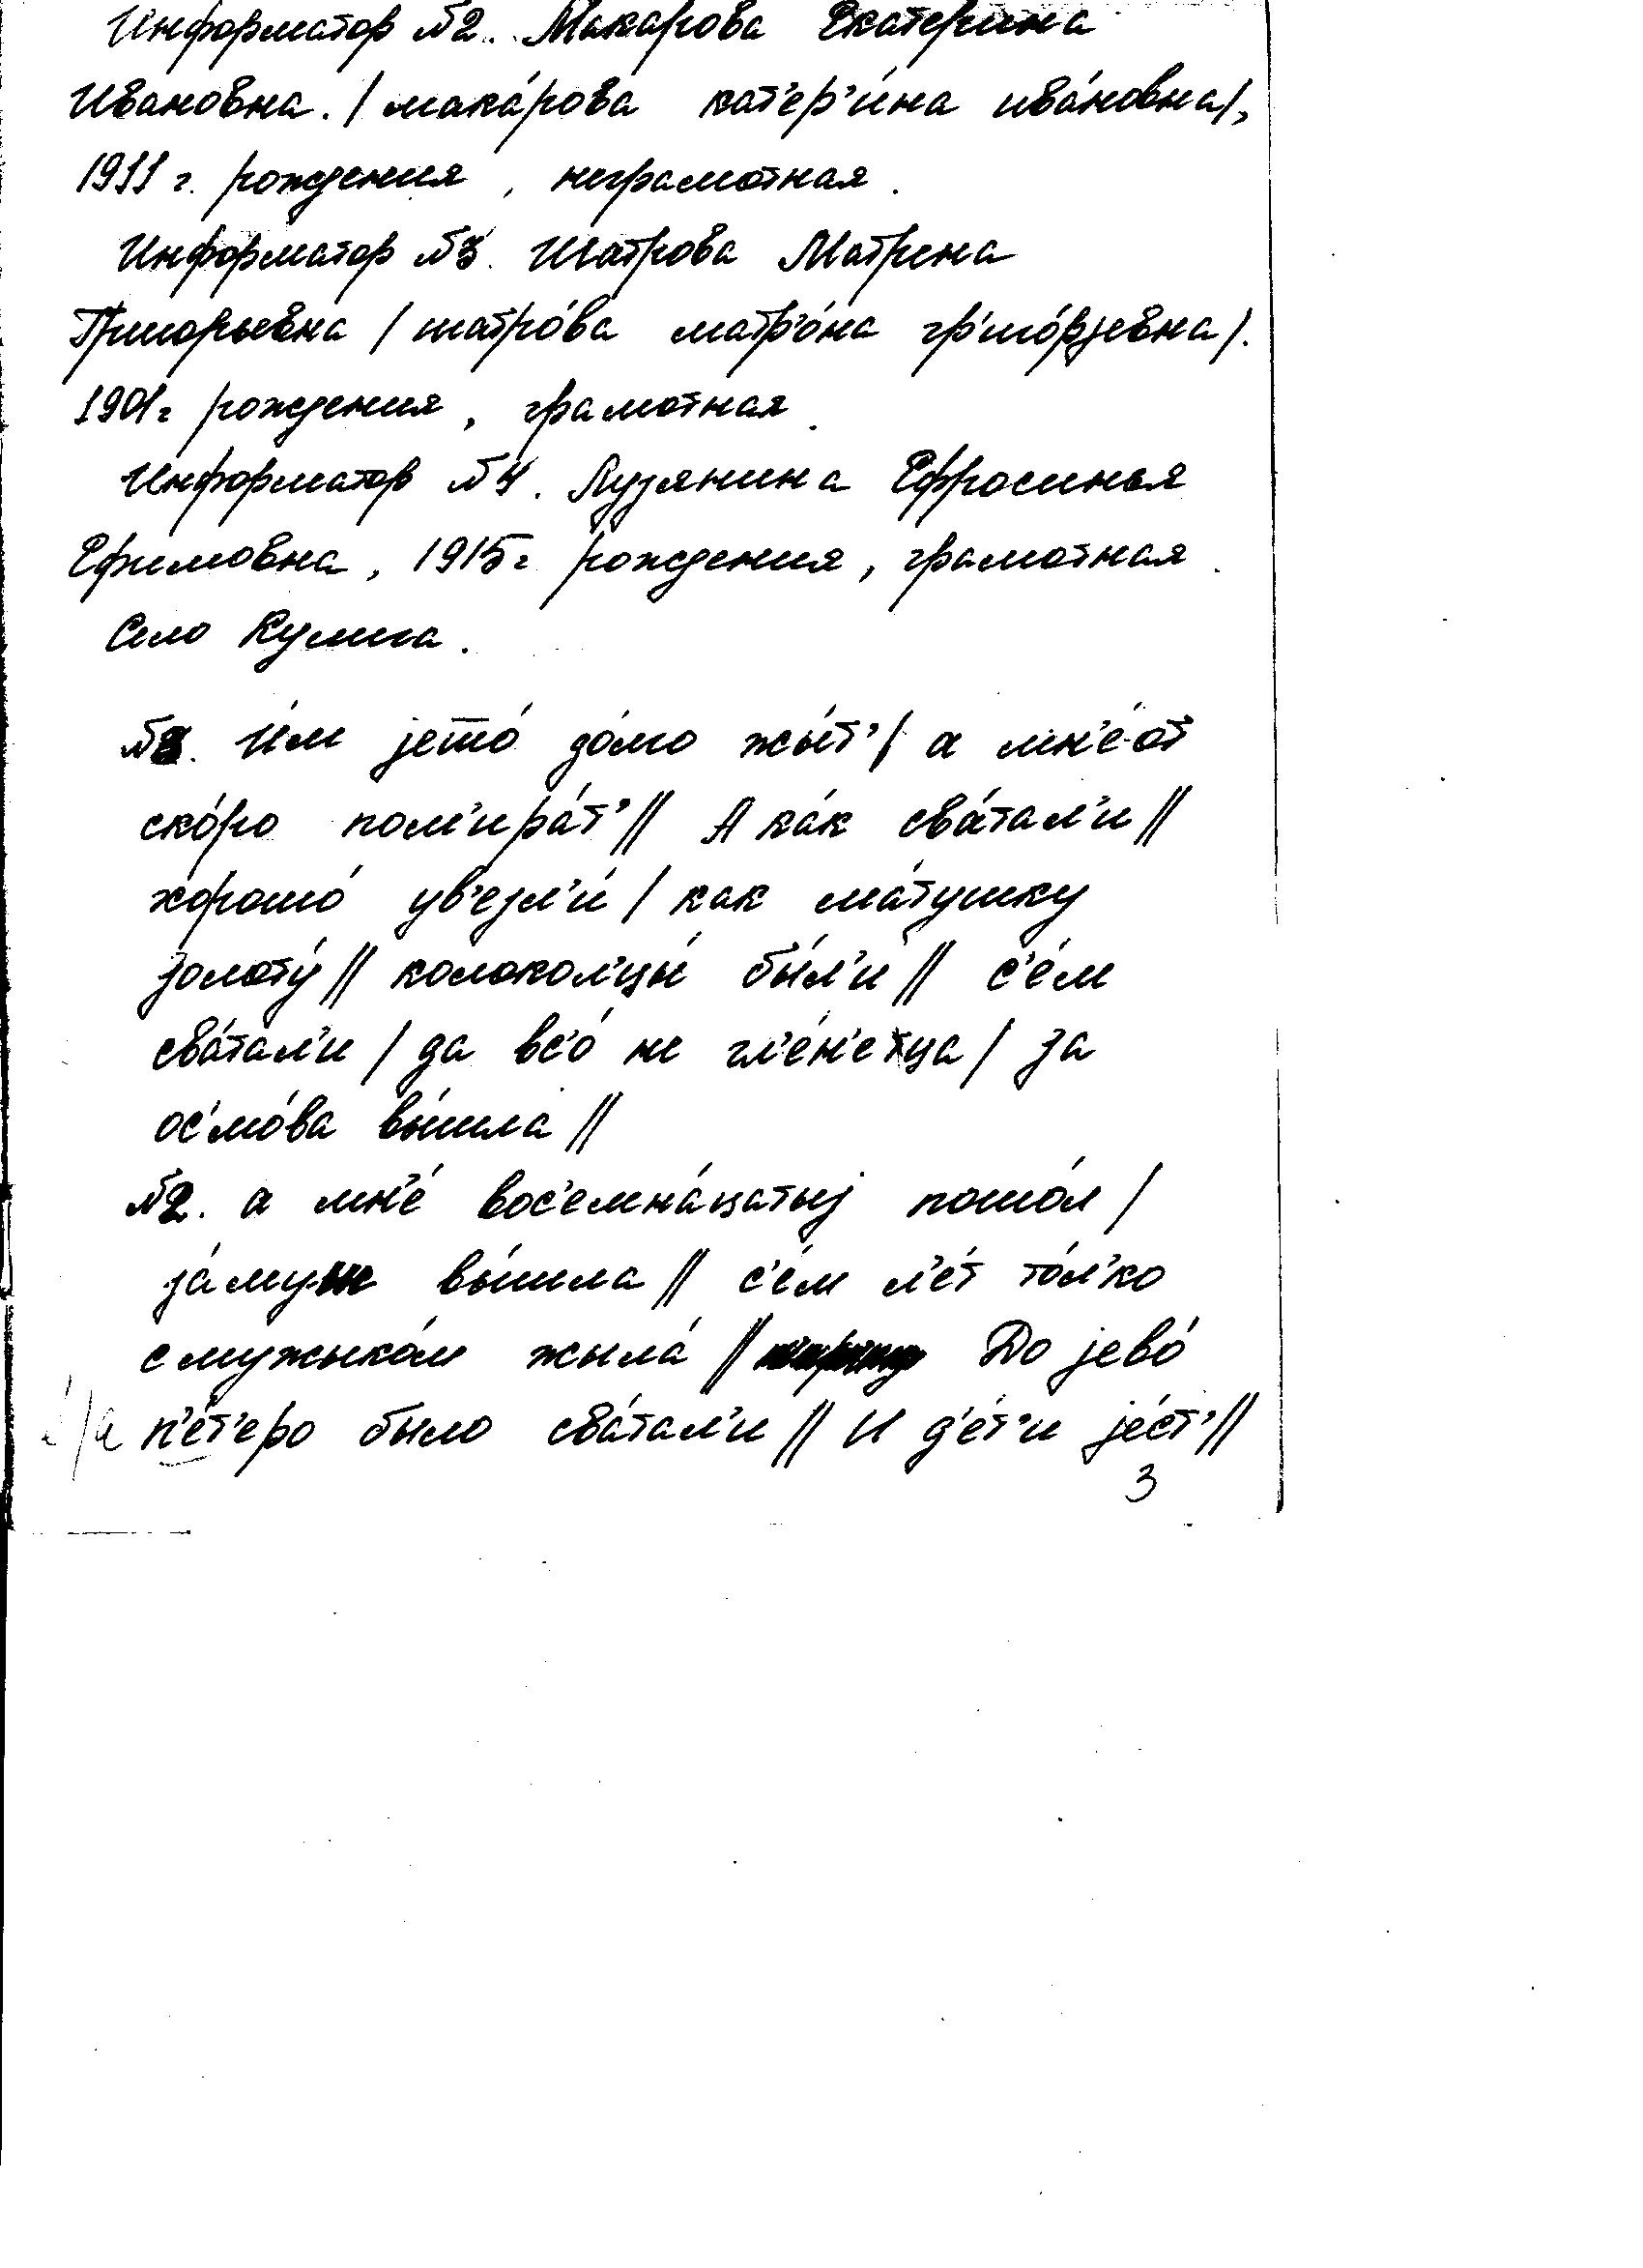 Информатор №2. Макарова Екатерина
Ивановна. /мака́рова кат'ер'и́на ива́новна/,
1911 г. рождения, неграмотная.
Информатор №3. Шатрова Матрена
Григорьевна /шатро́ва матр'о́на гр'иго́рjевна/.
1901г рождения, грамотная.
Информатор №4. Лузянина Ефросинья
Ефимовна, 1915г рождения, грамотная.
Село Кулига.
№3. И́м jешшо́ до́лго жы́т' / а мн'е́-от
ско́ро пом'ира́т' // А ка́к сва́тал'и //
хорошо́ ув'езл'и́ / как ма́тушку
золоту́ // колокол'цы́ бы́л'и // с'е́м
сва́тал'и / да вс'о́ не гл'е́н'етца / за
ос'мо́ва вы́шла //
№2. а мн'е́ вос'емна́цатыj пошо́л /
за́муж вы́шла // с'е́м л'е́т то́л'ко
с мужыко́м жыла́ // До jево́
п'е́т'еро было сва́тал'и // И д'е́т'и jе́ст' //
3